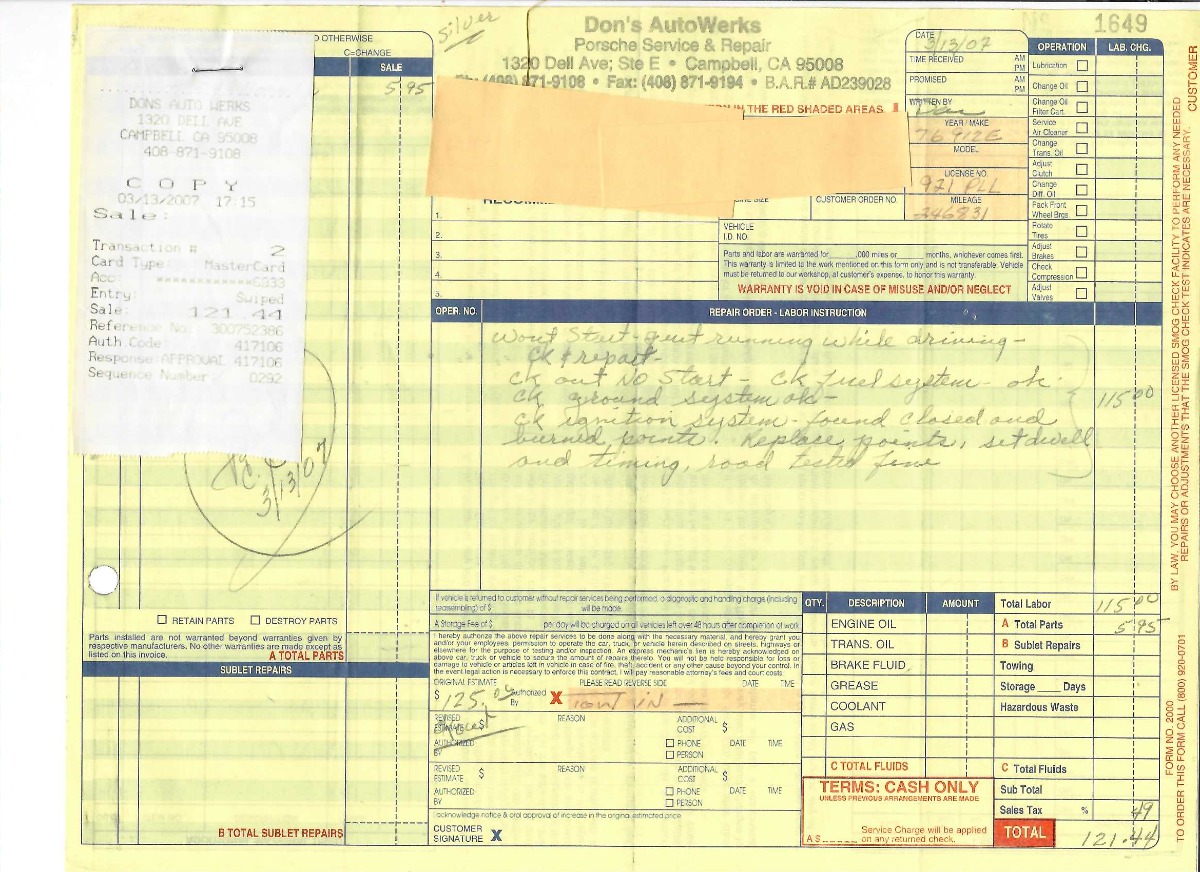 Silver
Don's AutoWerks
Porsche Service & Repair
1320 Dell Ave; Ste E • Campbell, CA 95008
Ph: (408) 871-9108 • Fax: (408) 871-9194 • B.A.R.# AD239028
IN THE RED SHADED AREAS.
1649
DATE
3/13/07
TIME RECEIVED AM PM
PROMISED AM PM
WRITTEN BY
YEAR / MAKE
76 912E
MODEL
LICENSE NO.
921 PLL
MILEAGE
246831
CUSTOMER ORDER NO.
VEHICLE I.D. NO.
OPERATION LAB. CHG.
Lubrication
Change Oil
Change Oil Filter Cart.
Service Air Cleaner
Change Trans. Oil
Adjust Clutch
Change Diff. Oil
Pack Front Wheel Brgs
Rotate Tires
Adjust Brakes
Check Compression
Adjust Valves
OTHERWISE
C=CHANGE
SALE
5 95
DONS AUTO WERKS
1320 DELL AVE
CAMPBELL CA 95008
408-871-9108
COPY
03/13/2007 17:15
Sale:
Transaction # 2
Card Type: MasterCard
Acc: ************6933
Entry: Swiped
Sale: 121.44
Reference No.: 300752386
Auth Code: 417106
Response: APPROVAL 417106
Sequence Number: 0292
3/13/07
1.
2.
3.
4.
5.
Parts and labor are warranted for ,000 miles or months, whichever comes first.
This warranty is limited to the work mentioned on this form only and is not transferable. Vehicle
must be returned to our workshop, at customer's expense, to honor this warranty.
WARRANTY IS VOID IN CASE OF MISUSE AND/OR NEGLECT
OPER. NO. REPAIR ORDER - LABOR INSTRUCTION
Wont Start - quit running while driving -
CK & repair -
CK out No Start - CK fuel system - ok.
CK ground system ok -
CK ignition system - found closed and
burned points. Replace points, set dwell
and timing, road tested fine
115 00
RETAIN PARTS DESTROY PARTS
Parts installed are not warranted beyond warranties given by
respective manufacturers. No other warranties are made except as
listed on this invoice.
A TOTAL PARTS
SUBLET REPAIRS
B TOTAL SUBLET REPAIRS
If vehicle is returned to customer without repair services being performed, a diagnostic and handling charge (including
reassembling) of $ will be made.
A Storage Fee of $ per day will be charged on all vehicles left over 48 hours after completion of work.
I hereby authorize the above repair services to be done along with the necessary material, and hereby grant you
and/or your employees, permission to operate the car, truck, or vehicle herein described on streets, highways or
elsewhere for the purpose of testing and/or inspection. An express mechanic's lien is hereby acknowledged on
above car, truck or vehicle to secure the amount of repairs thereto. You will not be held responsible for loss or
damage to vehicle or articles left in vehicle in case of fire, theft, accident or any other cause beyond your control. In
the event legal action is necessary to enforce this contract, I will pay reasonable attorney's fees and court costs.
ORIGINAL ESTIMATE PLEASE READ REVERSE SIDE DATE TIME
$ 125.00 Authorized By X TOW IN —
REVISED ESTIMATE $ REASON ADDITIONAL COST $
AUTHORIZED BY PHONE PERSON DATE TIME
REVISED ESTIMATE $ REASON ADDITIONAL COST $
AUTHORIZED BY PHONE PERSON DATE TIME
I acknowledge notice & oral approval of increase in the original estimated price.
CUSTOMER SIGNATURE X
QTY. DESCRIPTION AMOUNT
ENGINE OIL
TRANS. OIL
BRAKE FLUID
GREASE
COOLANT
GAS
C TOTAL FLUIDS
TERMS: CASH ONLY
UNLESS PREVIOUS ARRANGEMENTS ARE MADE
A $ Service Charge will be applied on any returned check.
Total Labor 115 00
A Total Parts 5 95
B Sublet Repairs
Towing
Storage ____ Days
Hazardous Waste
C Total Fluids
Sub Total
Sales Tax % 49
TOTAL 121.44
CUSTOMER
BY LAW, YOU MAY CHOOSE ANOTHER LICENSED SMOG CHECK FACILITY TO PERFORM ANY NEEDED
REPAIRS OR ADJUSTMENTS THAT THE SMOG CHECK TEST INDICATES ARE NECESSARY.
FORM NO. 2000
TO ORDER THIS FORM CALL (800) 920-0701